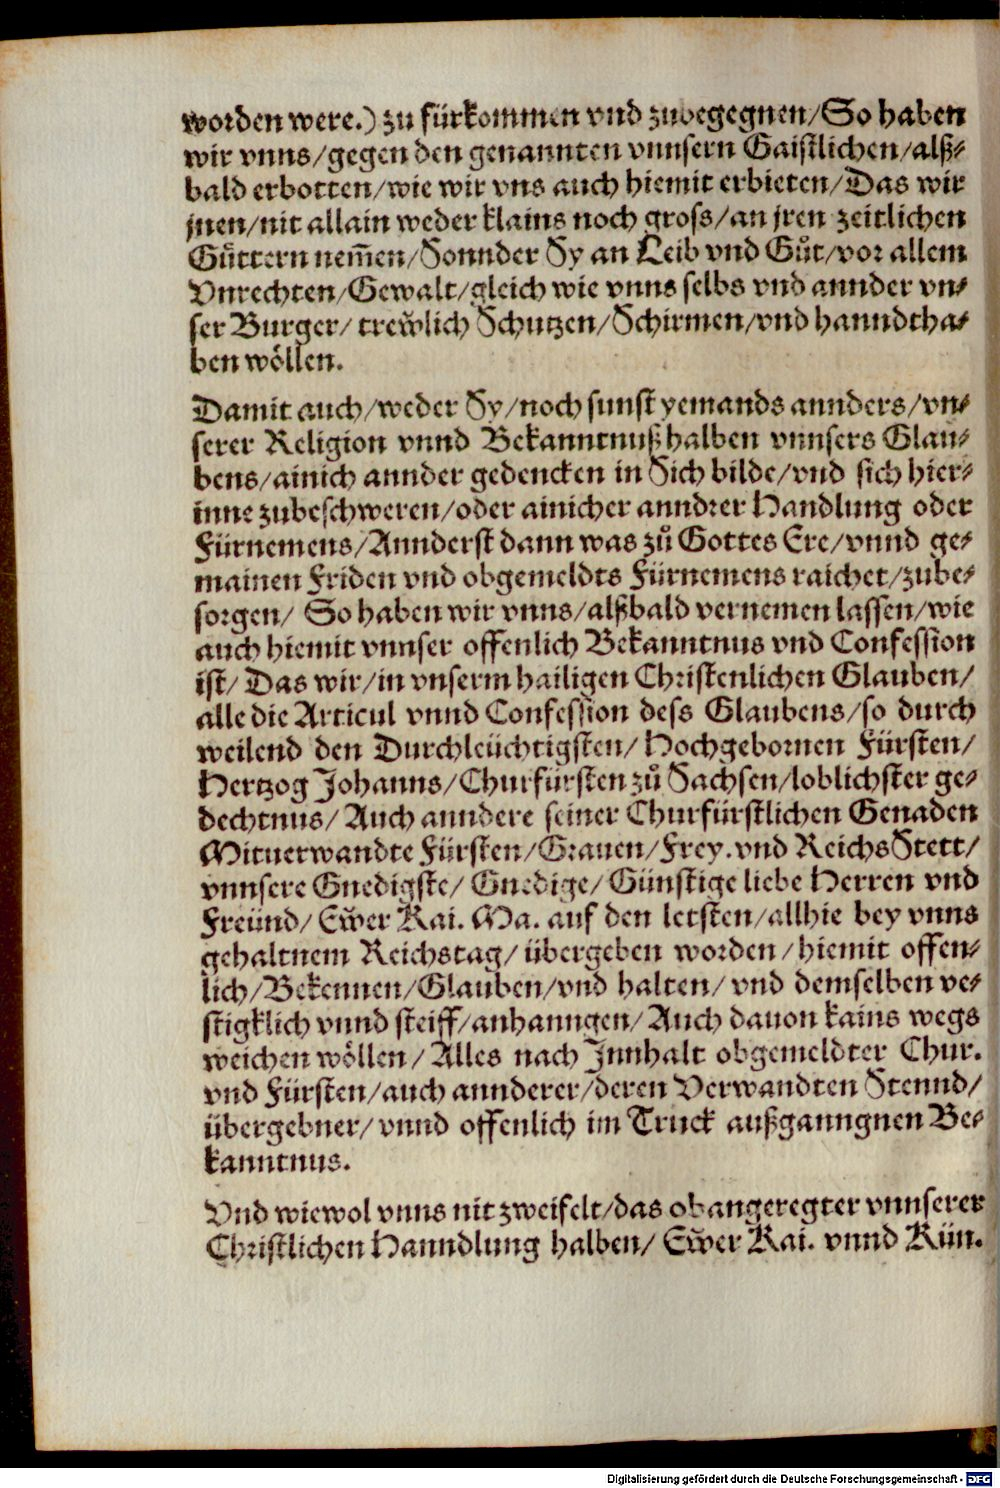 worden were.) zu fürkommen vnd zubegegnen/So haben
wir vnns/gegen den genannten vnnsern Gaistlichen/alß-
bald erbotten/wie wir vns auch hiemit erbieten/Das wir
jnen/nit allain weder klains noch gross/an jren zeitlichen
Gůttern nem̃en/Sonnder Sy an Leib vnd Gůt/vor allem
Vnrechten/Gewalt/gleich wie vnns selbs vnd annder vn-
ser Burger/ trew̆lich Schutzen/Schirmen/vnd hanndtha-
ben wöllen.
Damit auch/weder Sy/noch sunst yemands annders/vn-
serer Religion vnnd Bekanntnuß halben vnnsers Glau-
bens/ainich annder gedencken in Sich bilde/vnd sich hier-
inne zubeschweren/oder ainicher anndrer Handlung oder
Fürnemens/Annderst dann was zů Gottes Ere/vnnd ge-
mainen Friden vnd obgemeldts Fürnemens raichet/zube-
sorgen/ So haben wir vnns/alßbald vernemen lassen/wie
auch hiemit vnnser offenlich Bekanntnus vnd Confession
ist/ Das wir/in vnserm hailigen Christenlichen Glauben/
alle die Articul vnnd Confession dess Glaubens/so durch
weilend den Durchleüchtigsten/ Hochgebornen Fürsten/
Hertzog Johanns/Churfürsten zů Sachsen/loblichster ge-
dechtnus/ Auch anndere seiner Churfürstlichen Genaden
Mituerwandte Fürsten/Grauen/Frey.vnd ReichsStett/
vnnsere Gnedigste/ Gnedige/ Günstige liebe Herren vnd
Freünd/ Ew̆er Kai. Ma. auf den letsten/allhie bey vnns
gehaltnem Reichstag/ übergeben worden/hiemit offen-
lich/Bekennen/Glauben/vnd halten/ vnd demselben ve-
stigklich vnnd steiff/anhanngen/ Auch dauon kains wegs
weichen wöllen/ Alles nach Innhalt obgemeldter Chur.
vnd Fürsten/auch annderer/deren Verwandten Stennd/
übergebner/ vnnd offenlich im Truck außganngnen Be-
kanntnus.
Vnd wiewol vnns nit zweifelt/das obangeregter vnnserer
Christlichen Hanndlung halben/ Ew̆er Kai. vnnd Kün.
Digitalisierung gefördert durch die Deutsche Forschungsgemeinschaft - DFG